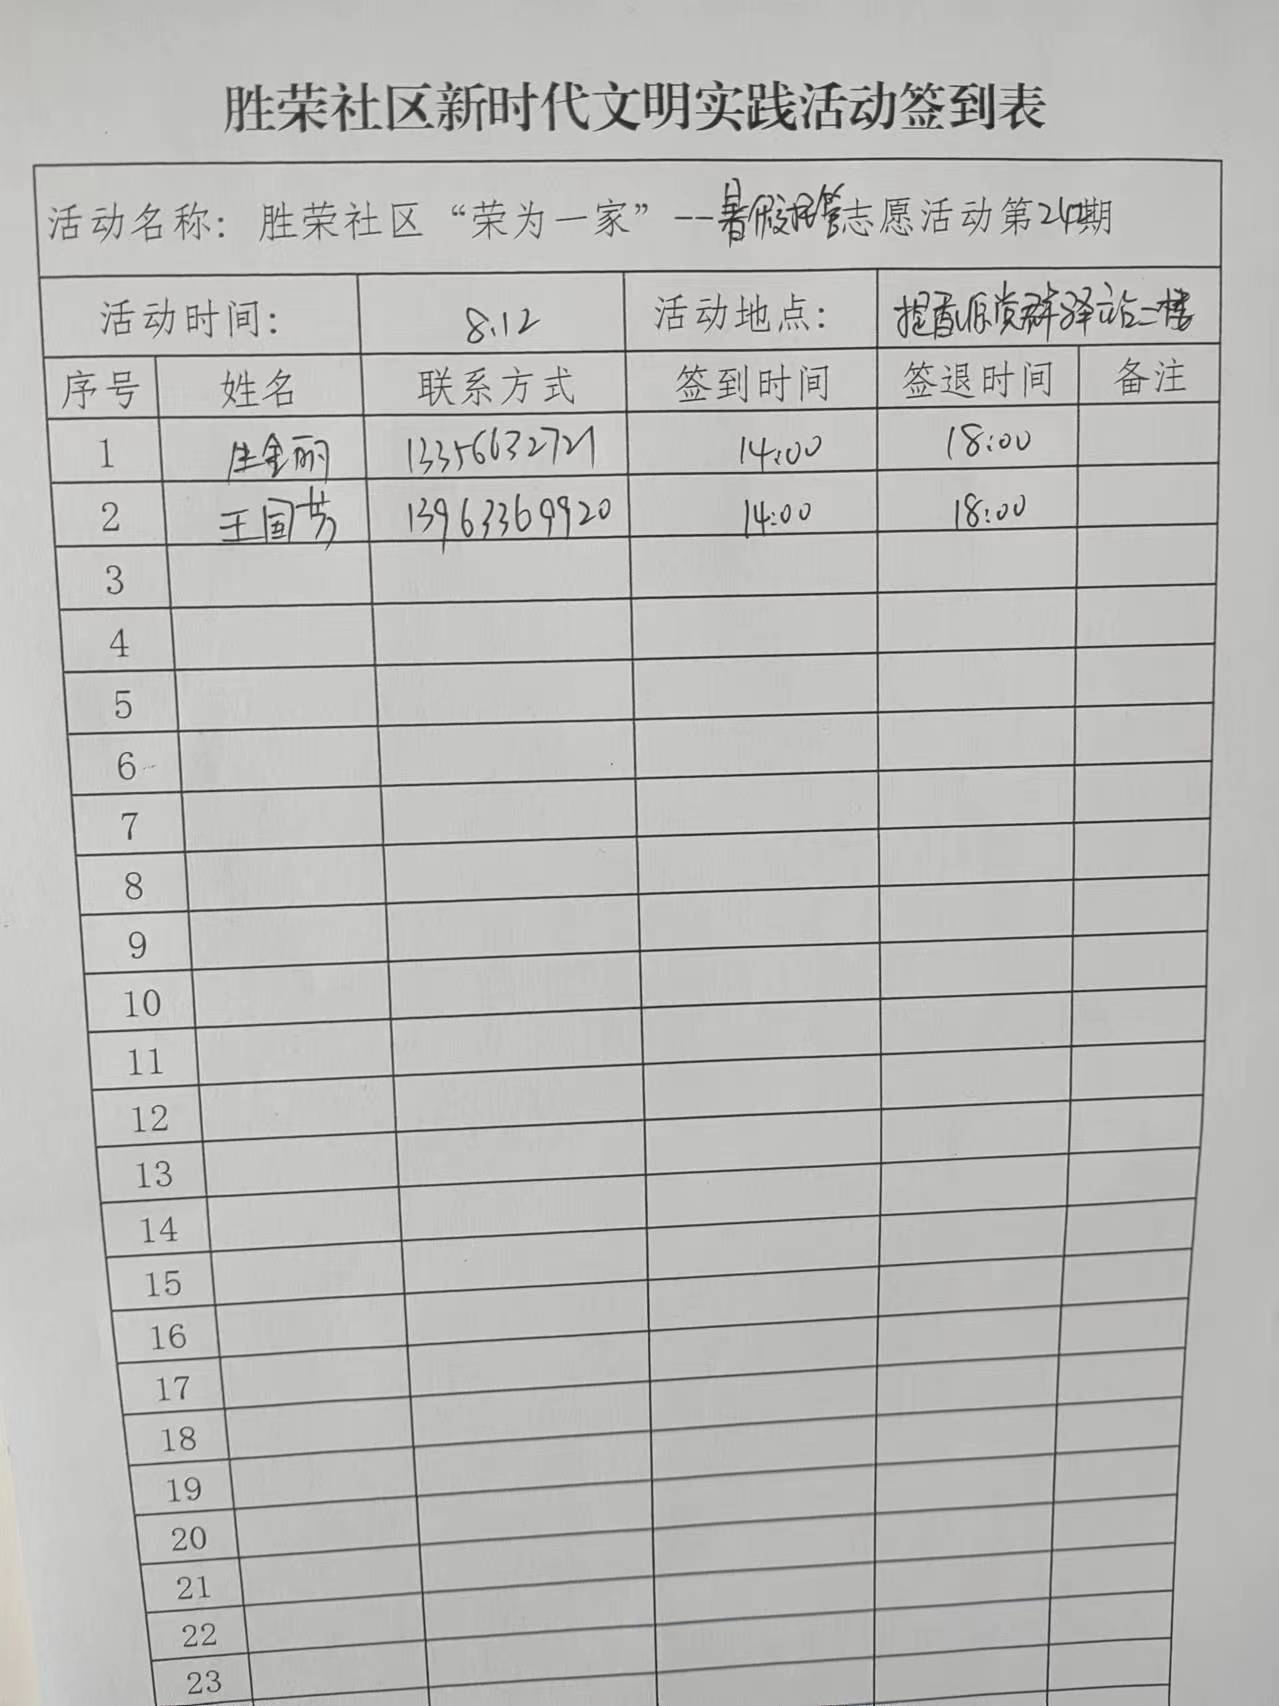 胜荣社区新时代文明实践活动签到表
活动名称：胜荣社区“荣为一家”--暑假托管志愿活动第24期
活动时间： 8.12 活动地点： 提香源党群驿站二楼
序号 姓名 联系方式 签到时间 签退时间 备注
1 金丽 13356632721 14:00 18:00
2 王国芳 13963369920 14:00 18:00
3
4
5
6
7
8
9
10
11
12
13
14
15
16
17
18
19
20
21
22
23